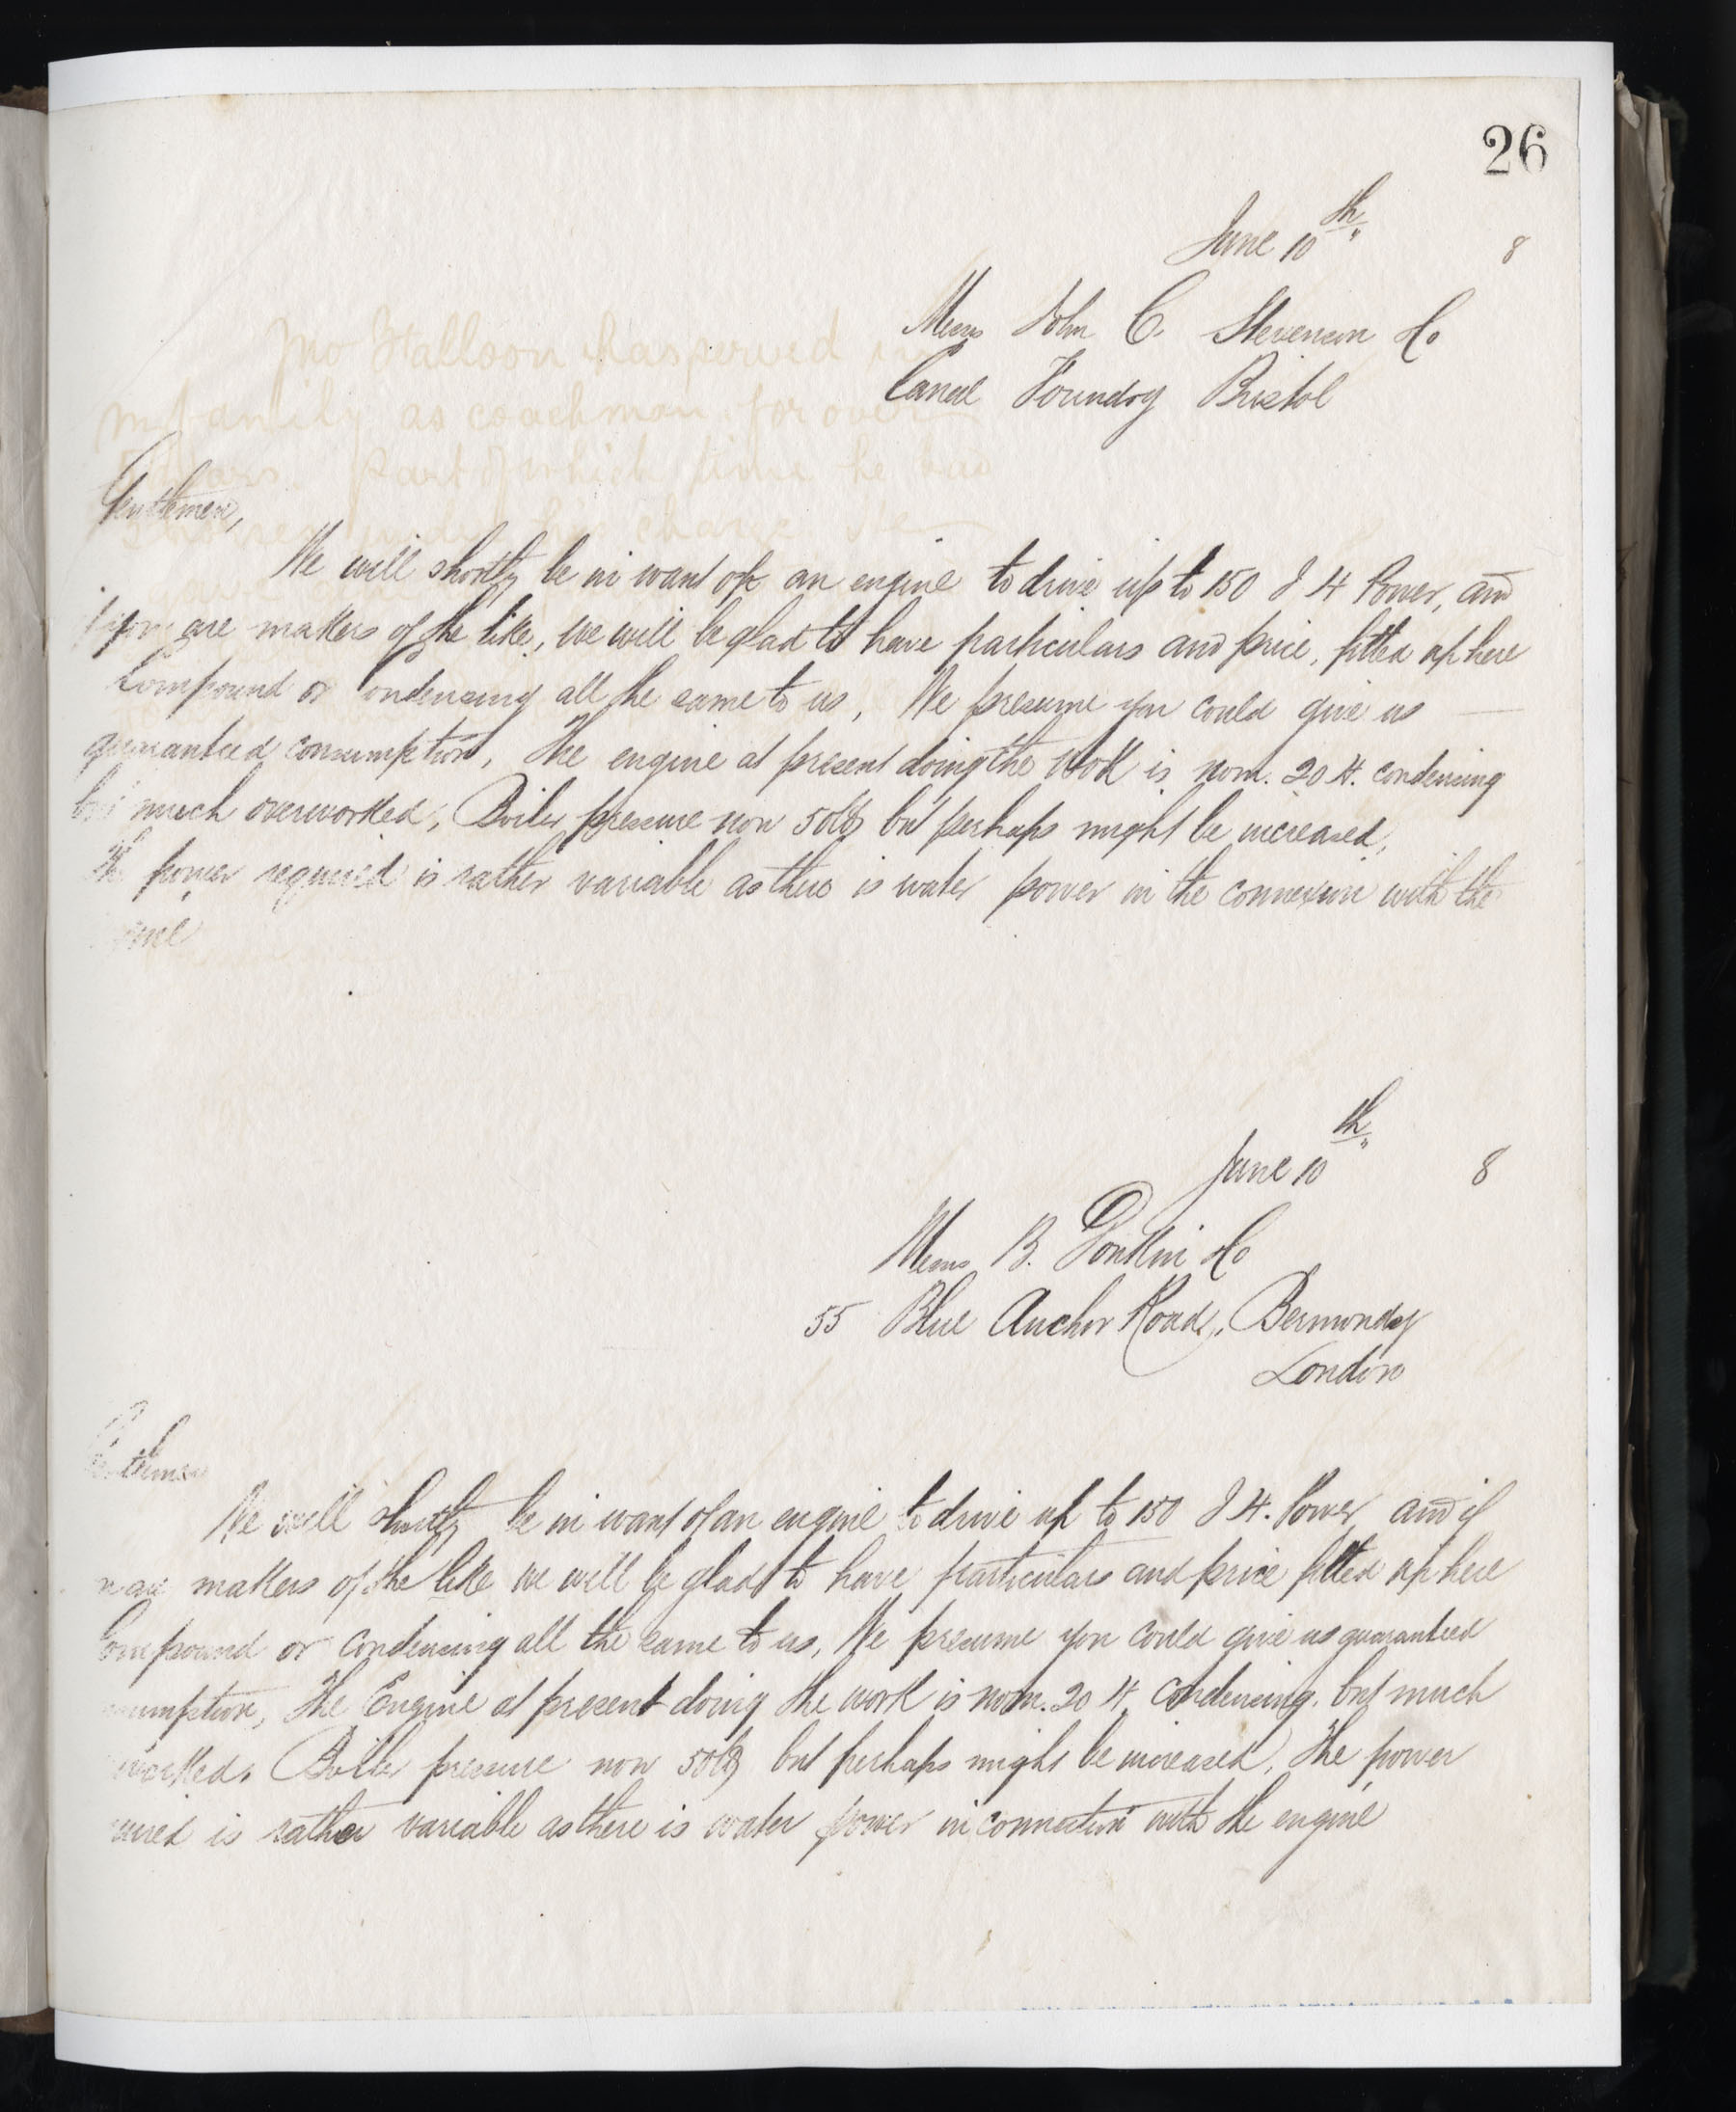 26
June 10th 8
Messrs John C. Stevenson & Co
Canal Foundry Bristol
Jno Stalloon has served in
my family as coachman for over
years. Part of which time he had
charge
Gentlemen,
We will shortly be in want of an engine to drive up to 150 I H Power, and
if you are makers of the like, we will be glad to have particulars and price, fitted up here
Compound or Condensing all the same to us, We presume you could give us
guaranteed consumption, The engine at present doing the work is nom. 20 H. condensing
but much overworked, Boiler pressure now 50 lbs but perhaps might be increased,
The power required is rather variable as there is water power in the connexion with the
June 10th 8
Messrs B. Donkin & Co
55 Blue Anchor Road, Bermondsy
London
Gentlemen
We will shortly be in want of an engine to drive up to 150 I H. Power and if
makers of the like we will be glad to have particulars and price fitted up here
Compound or condensing all the same to us, We presume you could give us guaranteed
sumption, The Engine at present doing the work is nom. 20 H. condensing, but much
worked. Boiler pressure now 50 lbs but perhaps might be increased, The power
uired is rather variable as there is water power in connection with the engine